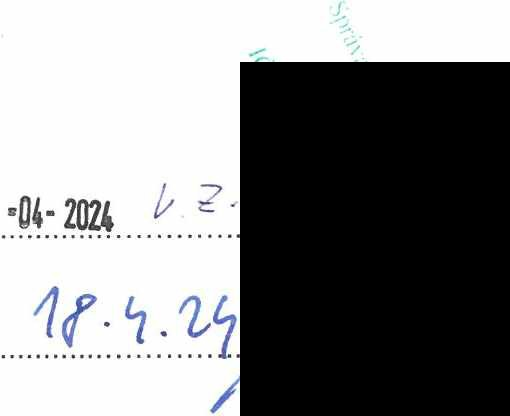 Správa
-04- 2024 V. Z.
18.4.24